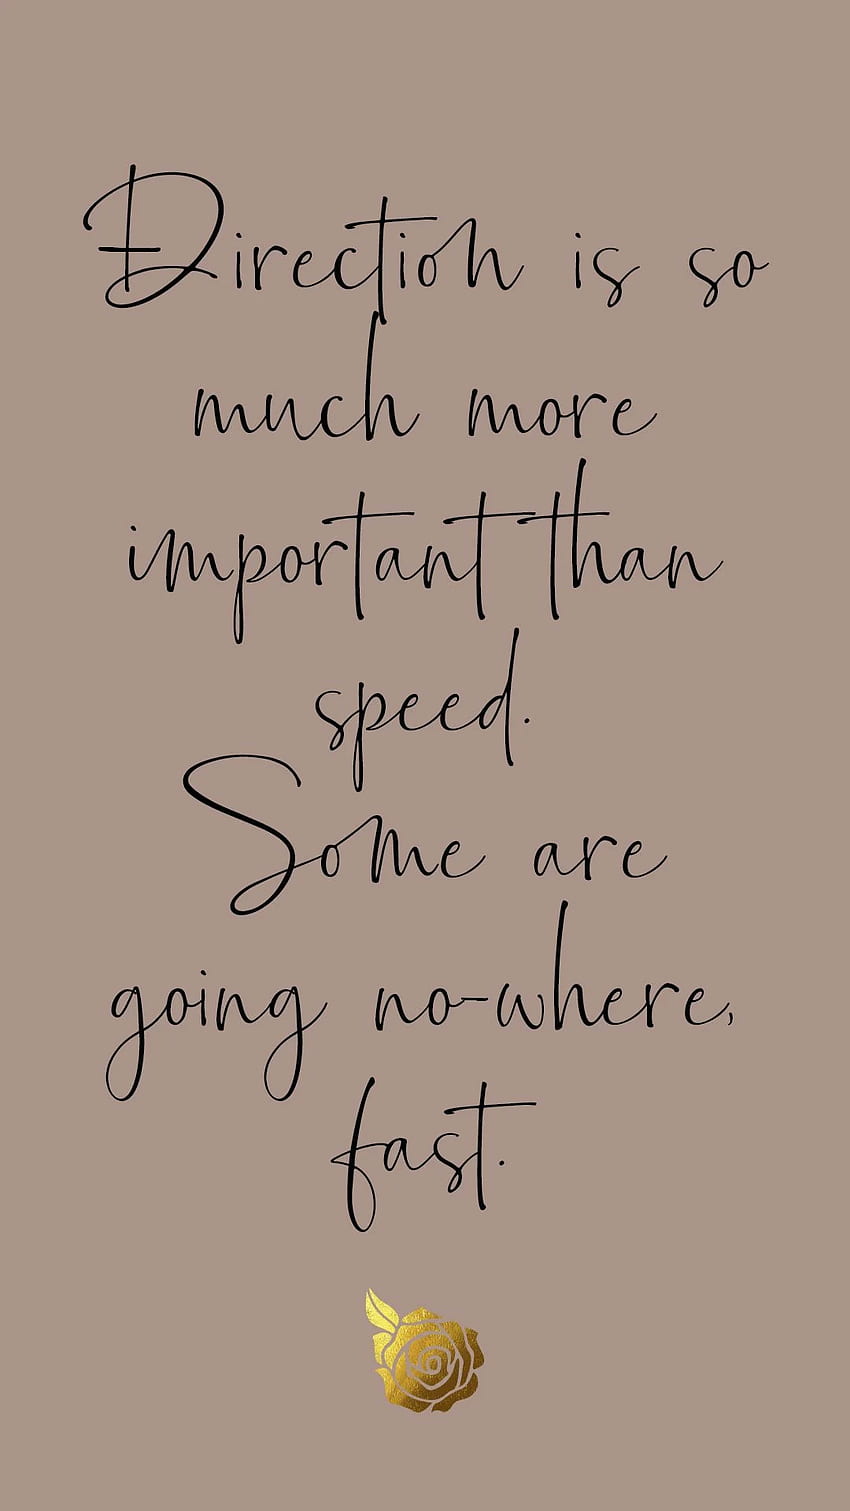 Direction is so
much more
important than
speed.
Some are
going no-where,
fast.